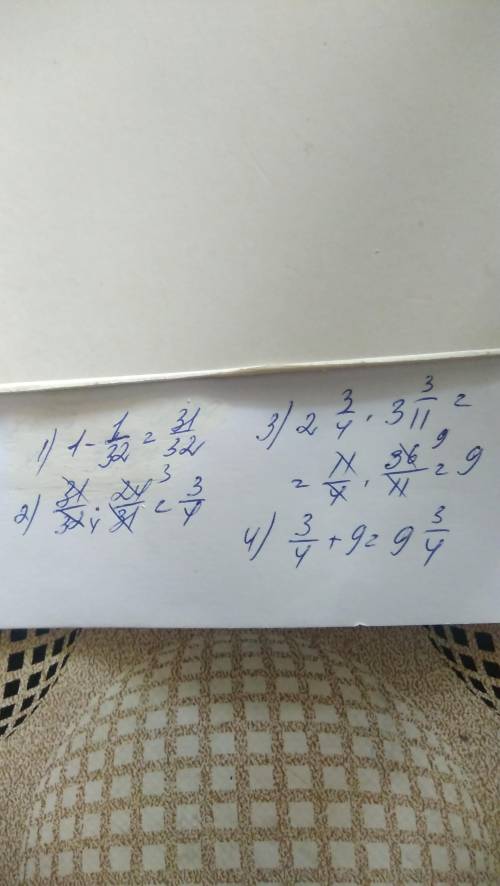 1) 1 - 1/32 = 31/32
2) 31/32 · 24/31 = 3/4
4
3
3) 2 3/4 · 3 3/11 =
= 11/4 · 36/11 = 9
9
4) 3/4 + 9 = 9 3/4